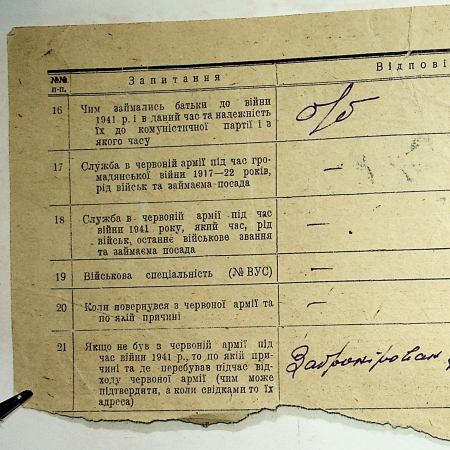 №№ п-п.
Запитання
Відпові
16
Чим займались батьки до війни
1941 р. і в даний час та належність
їх до комуністичної партії і з
якого часу
б/б
17
Служба в червоній армії під час гро-
мадянської війни 1917—22 років,
рід військ та займаєма посада
—
18
Служба в червоній армії під час
війни 1941 року, який час, рід
військ, останнє військове звання
та займаєма посада
—
19
Військова спеціальність (№ ВУС)
—
20
Коли повернувся з червоної армії та
по якій причині
—
21
Якщо не був в червоній армії під
час війни 1941 р., то по якій при-
чині та де перебував підчас від-
ходу червоної армії (чим може
підтвердити, а коли свідками то їх
адреса)
Забронірован